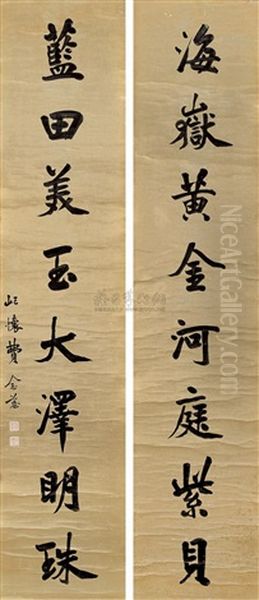 海嶽黃金河庭紫貝
藍田美玉大澤明珠
屺懷費念慈
NiceArtGallery.com